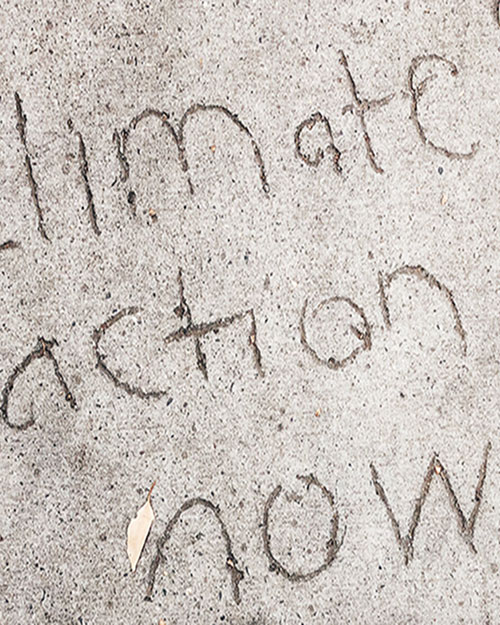 climate
action
now